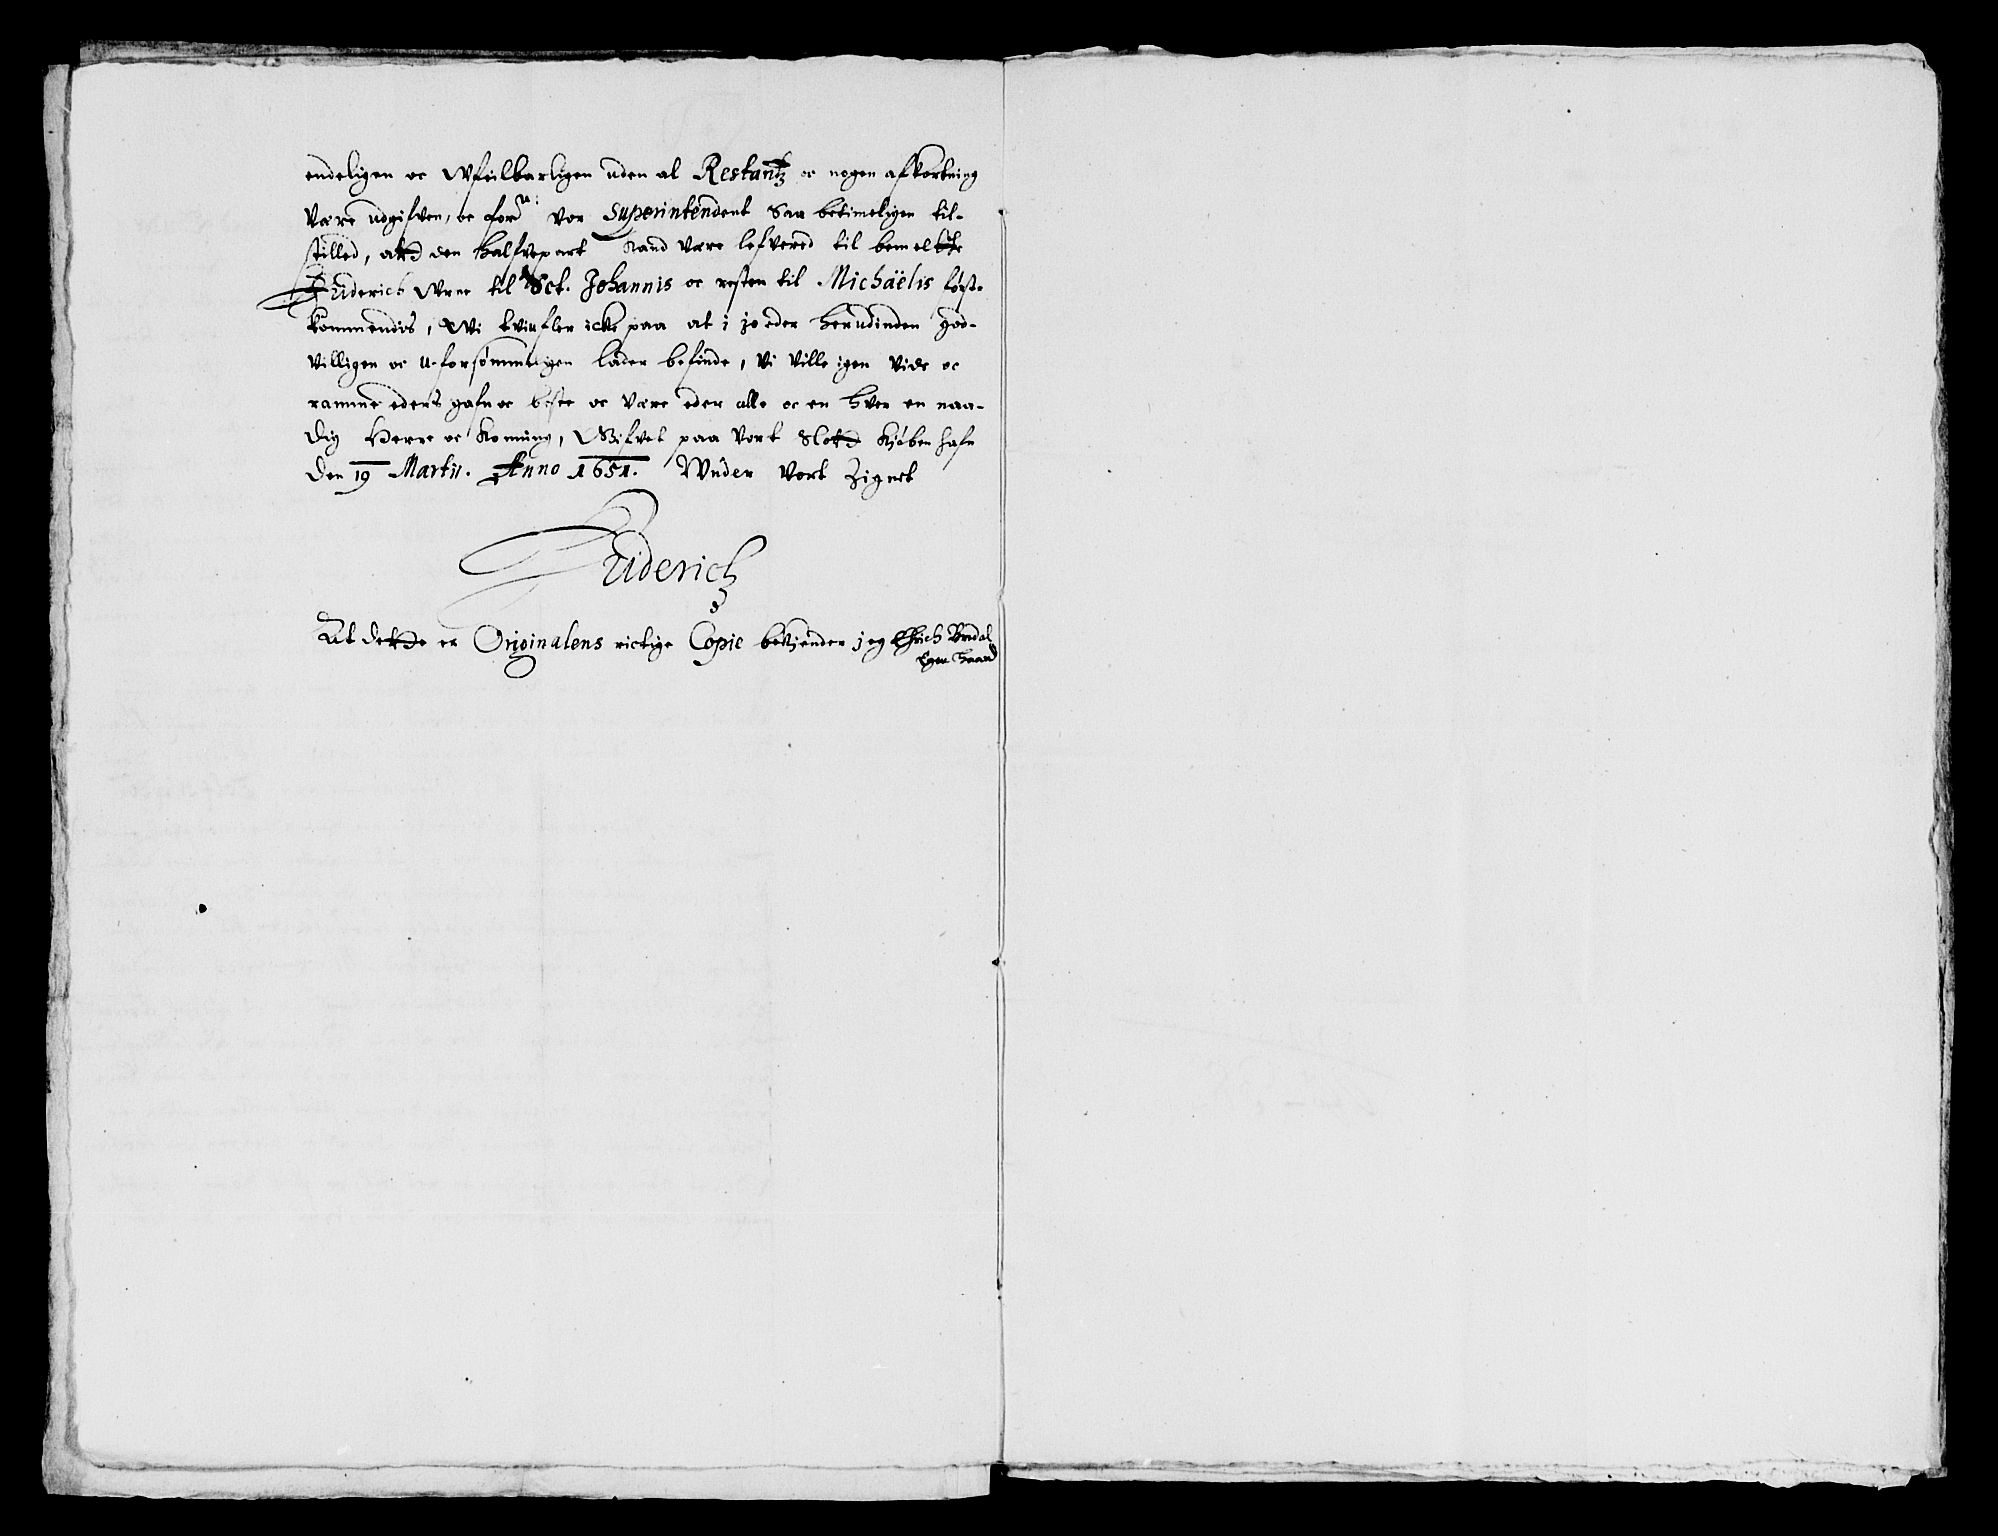 endeligen oc Wfeilbarligen uden al Restantz oc nogen afkortning
være udgifven, oc forn: vor Superintendent saa betimeligen til-
stilled, atd den halfvepart kand være lefvered til bemelte
Friderich Wrne til Sct. Johannis oc resten til Michaëlis først-
kommendis, Wi tviufler icke paa at i jo eder herudinden god-
villigen oc uforsømmeligen lader befinde, vi ville igen vide oc
ramme eders gafn oc beste oc være eder alle oc en hver en naa-
dig Herre oc Konning, Gifvet paa vort Slotd Kjøbenhafn
den 19 Martii. Anno 1651. Wnder vort Zignet
Friderich
At detde er Originalens rictige Copie bekjender jeg Erich Bredal
Egen haand